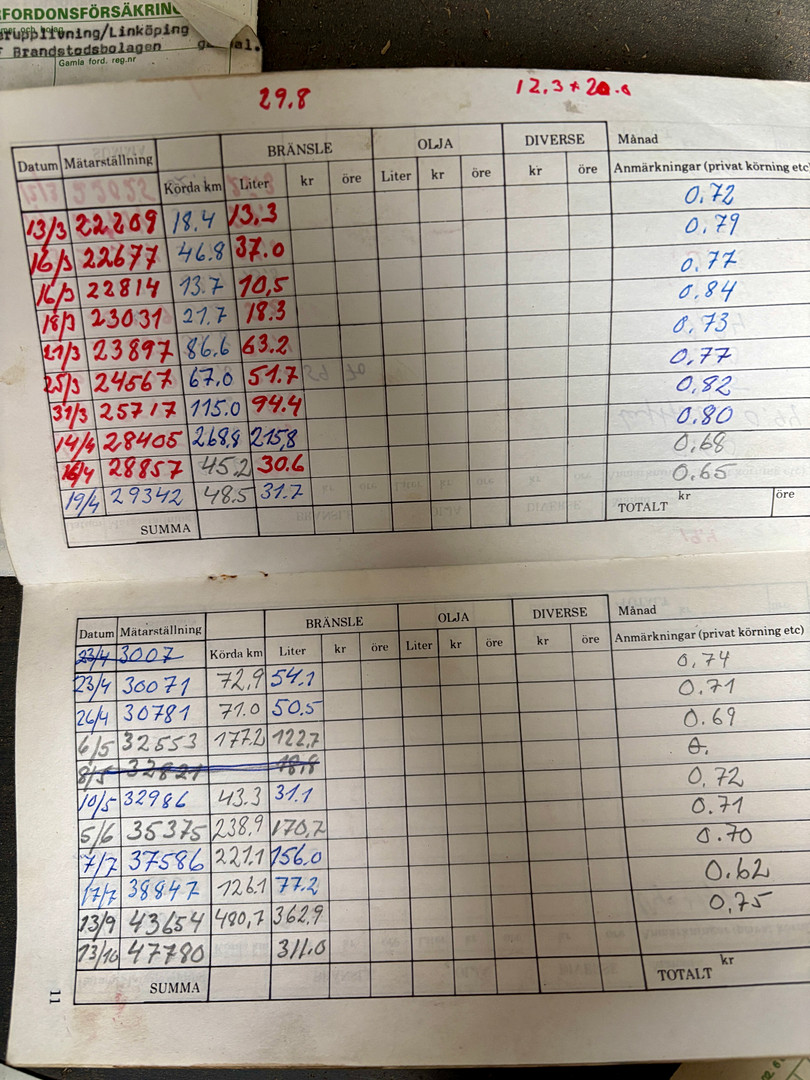 FORDONSFÖRSÄKRIN
arupplivning/Linköping
Brandstodsbolagen
Gamla ford. reg.nr
29.8 12.3 + 20.0
BRÄNSLE OLJA DIVERSE Månad
Datum Mätarställning Körda km Liter kr öre Liter kr öre kr öre Anmärkningar (privat körning etc)
13/3 22209 18.4 13,3 0.72
16/3 22677 46.8 37.0 0.79
16/3 22814 13.7 10,5 0.77
18/3 23031 21.7 18.3 0.84
21/3 23897 86.6 63.2 0.73
25/3 24567 67.0 51.7 0,77
31/3 25717 115.0 94.4 0,82
14/4 28405 268.8 215,8 0.80
16/4 28857 45.2 30.6 0,68
19/4 29342 48.5 31.7 0.65
SUMMA TOTALT kr öre
BRÄNSLE OLJA DIVERSE Månad
Datum Mätarställning Körda km Liter kr öre Liter kr öre kr öre Anmärkningar (privat körning etc)
23/4 3007
23/4 30071 72,9 54.1 0,74
26/4 30781 71.0 50.5 0.71
6/5 32553 177.2 122,7 0.69
8/5 32821 18,8 0.
10/5 32986 43.3 31.1 0,72
5/6 35375 238,9 170,7 0.71
7/7 37586 221,1 156.0 0.70
17/7 38847 126.1 77.2 0.62
13/9 43654 480,7 362.9 0,75
13/10 47780 311.0
SUMMA TOTALT kr
11